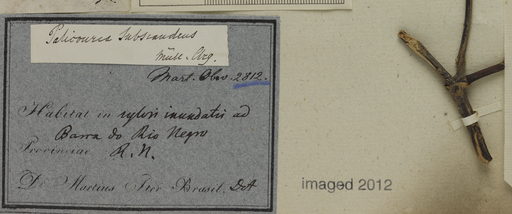 Palicourea subscandens
Müll. Arg.
Mart. Obs. 2812.
Habitat in sylvis inundatis ad
Barra do Rio Negro
Provinciae R. N.
Dr. Martius Iter Brasil.
imaged 2012